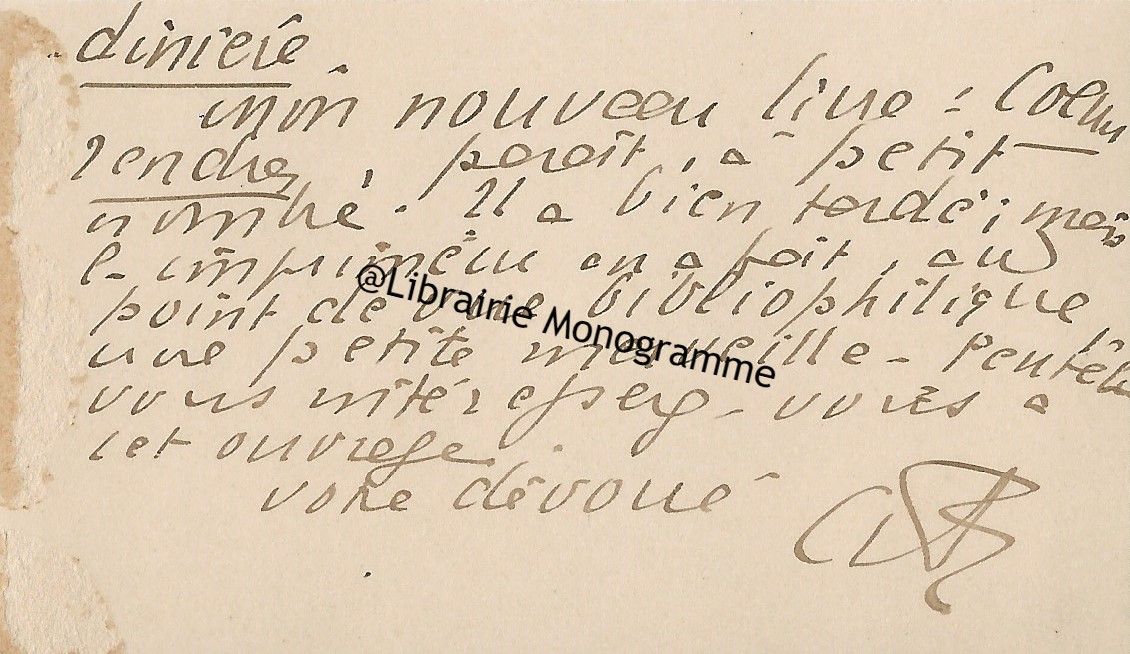 sincère.
Mon nouveau livre : Coeurs
tendres, paraît, à petit
nombre. Il a bien tardé ; mais
l'imprimeur en a fait, au
point de vue bibliophilique,
une petite merveille - Peut-être
vous intéresserez-vous à
cet ouvrage.
votre dévoué
@Librairie Monogramme